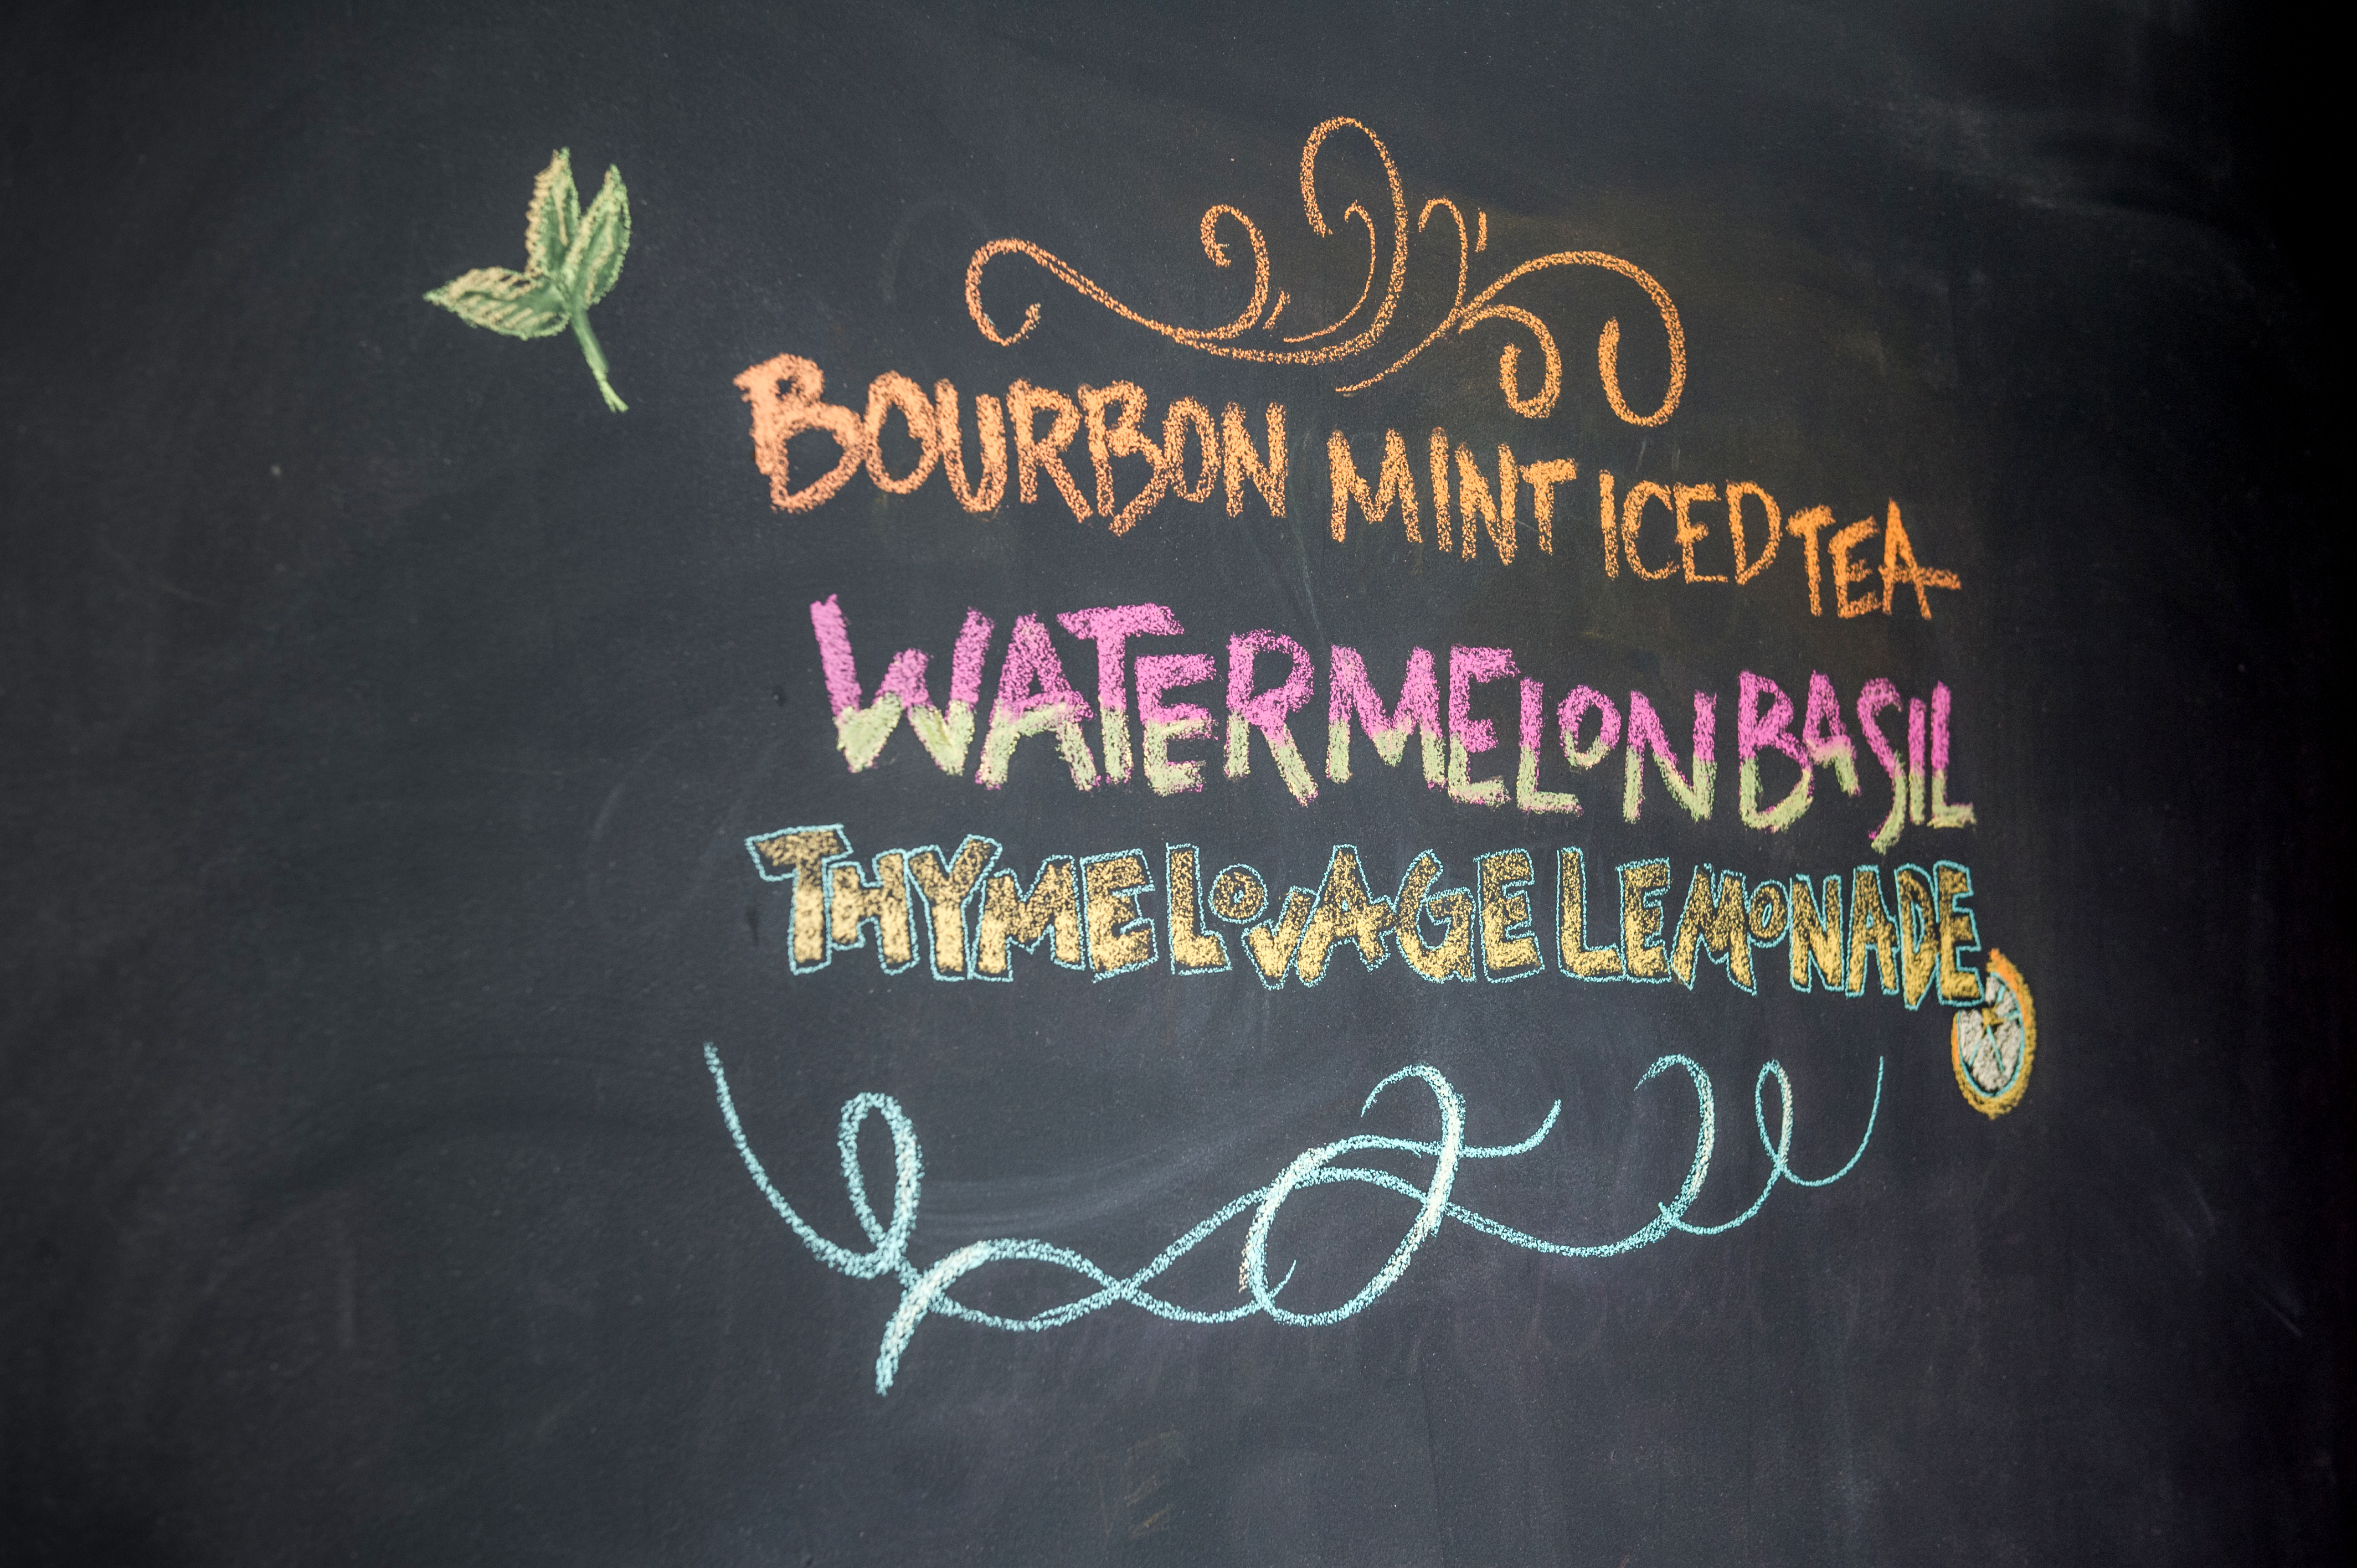 BOURBON MINT ICED TEA
WATERMELON BASIL
THYME LOVAGE LEMONADE